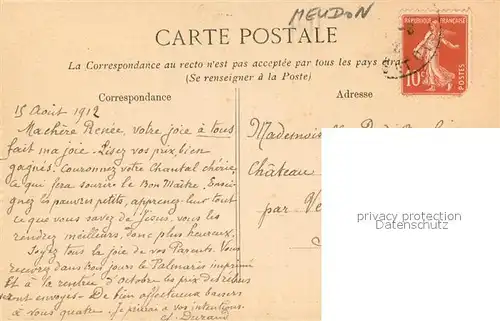 MEUDON
CARTE POSTALE
La Correspondance au recto n'est pas acceptée par tous les pays
(Se renseigner à la Poste)
REPUBLIQUE FRANÇAISE
10c
POSTES
Correspondance
Adresse
15 Août 1912
Ma chère Renée, votre joie à tous
fait ma joie. Lisez vos prix, bien
gagnés. Couronnez votre Chantal chérie,
ce qui fera sourire le Bon Maître. Ensei-
gnez les pauvres petits, apprenez-leur tout
ce que vous savez de Jésus, vous les
rendrez meilleurs, donc plus heureux.
Soyez tous la joie de vos Parents. Vous
recevrez dans trois jours le Palmarès imprimé
Et à la rentrée d'octobre les prix
seront envoyés. De bien affectueux baisers
à vous quatre. Je à vos intentions.
Durand
Château
par
privacy protection
watermark